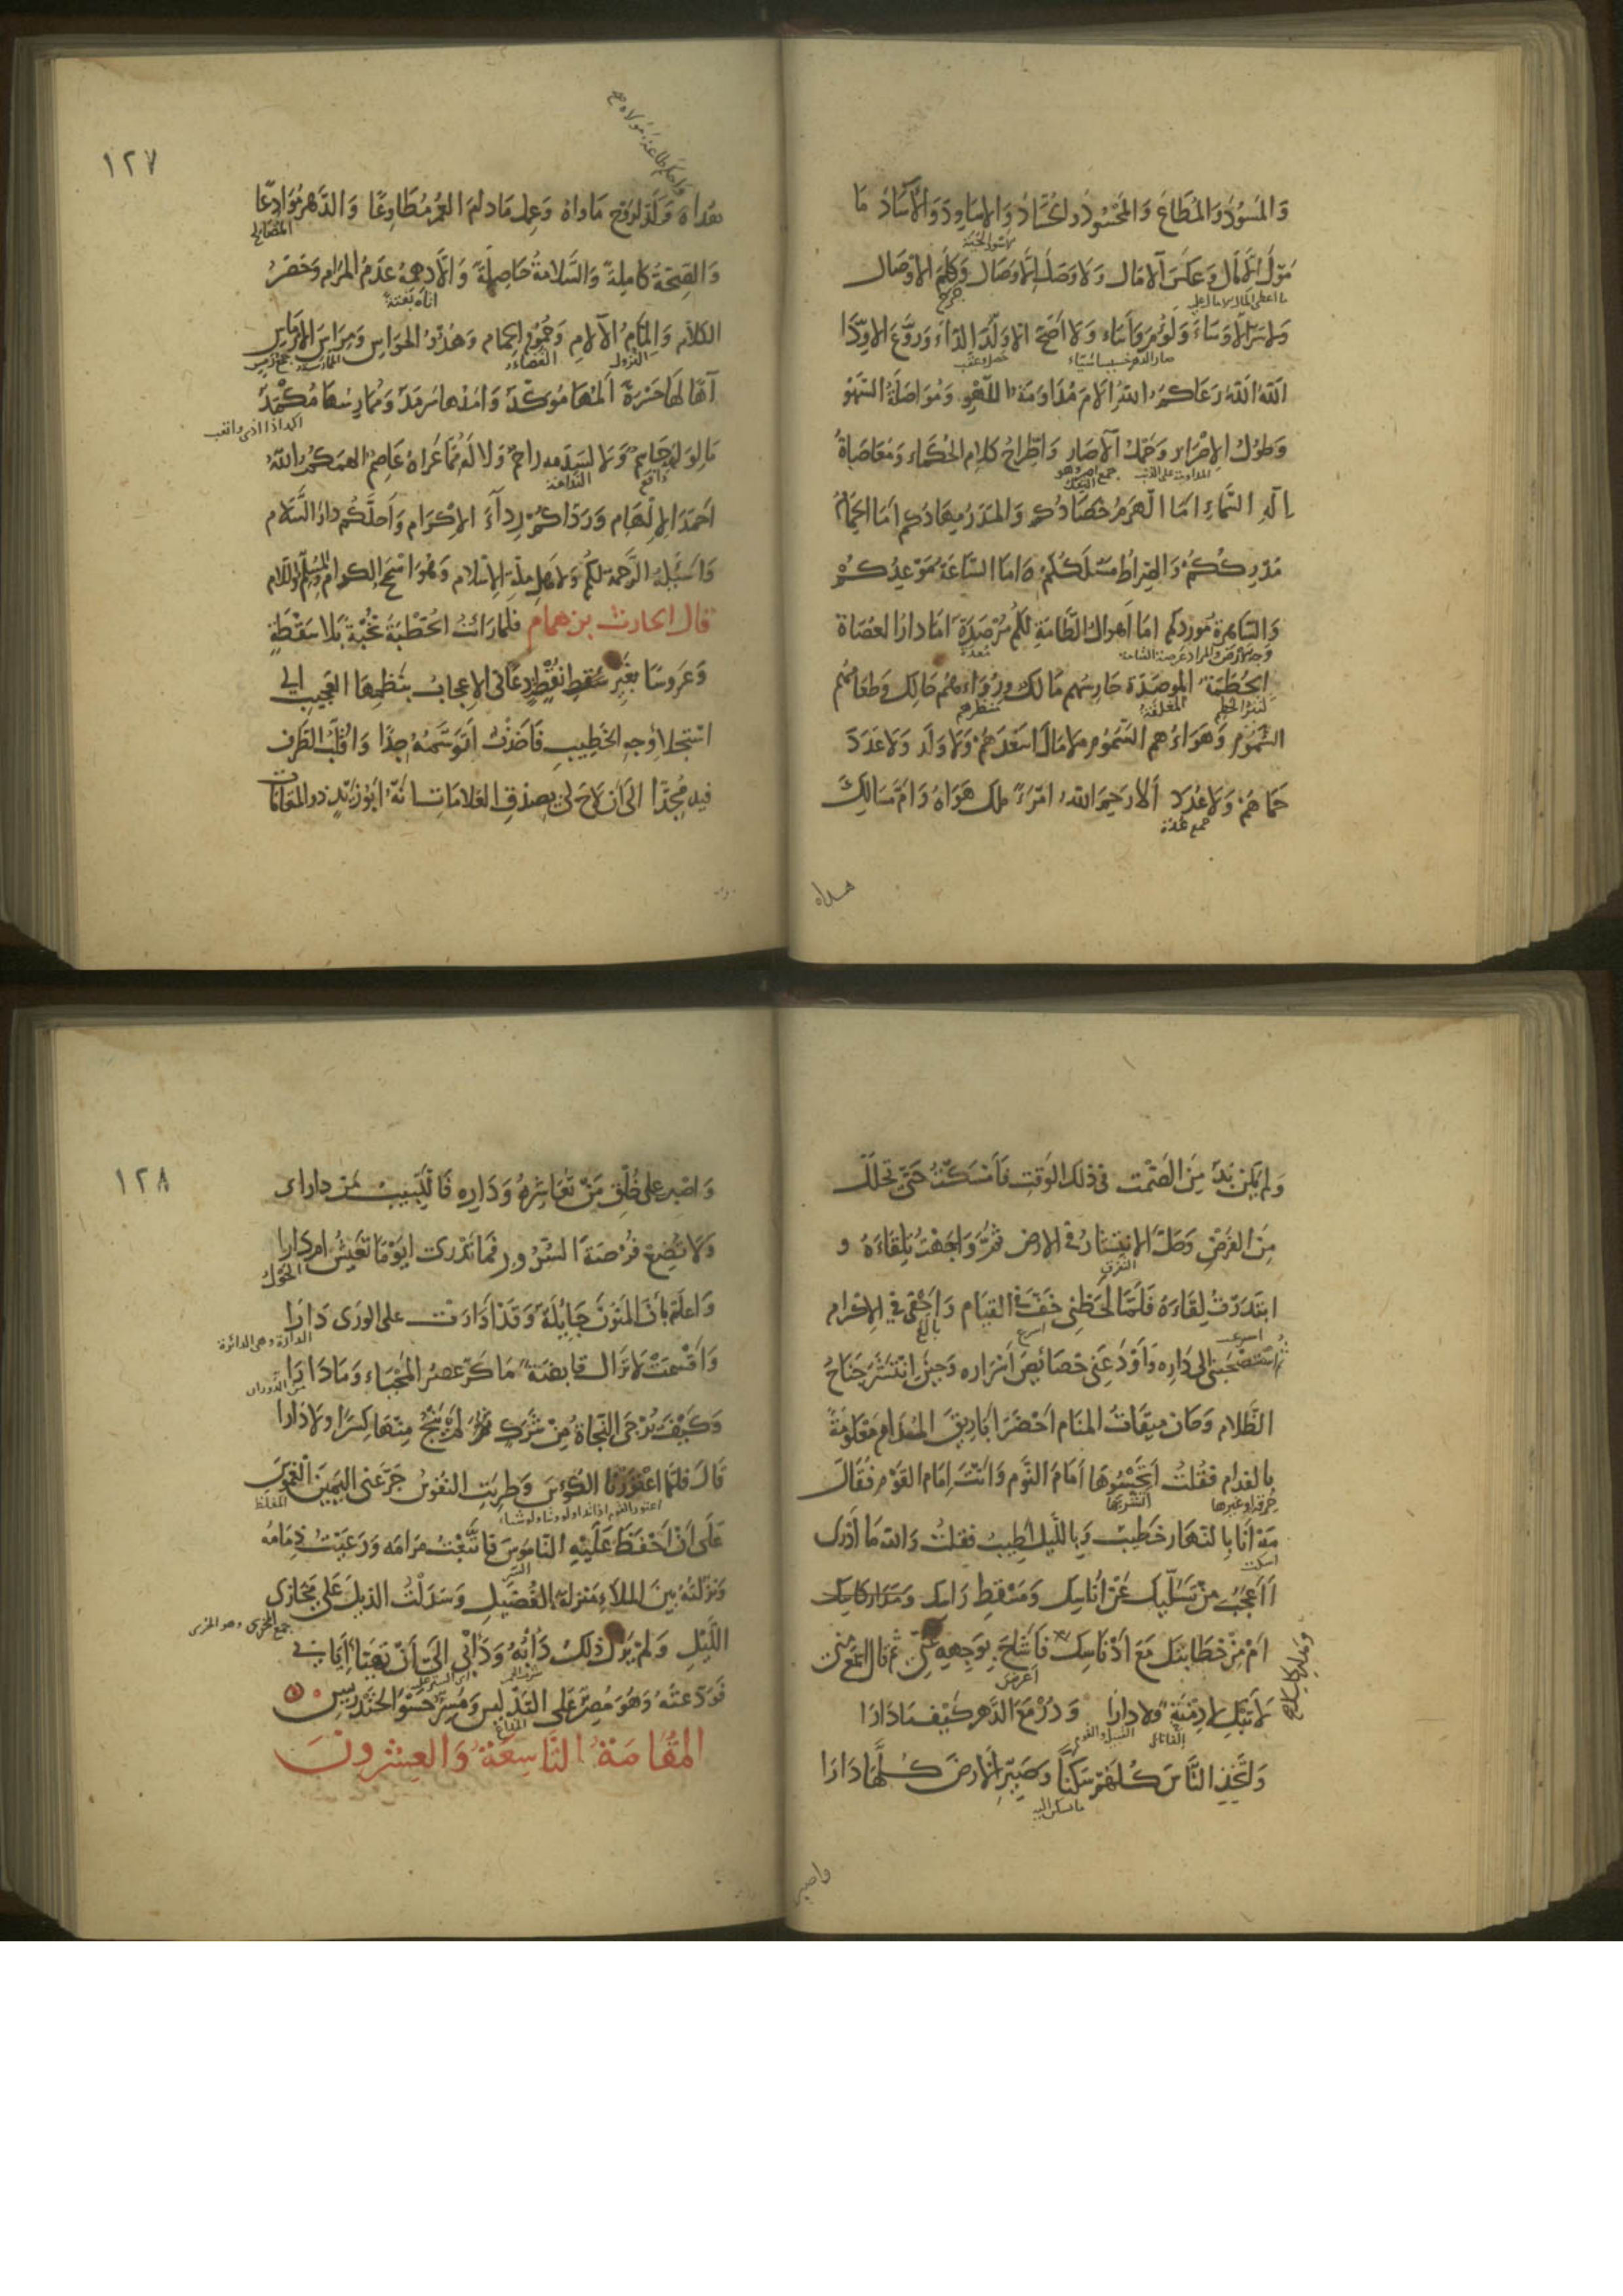 وَالمَسُوْدُ وَالمُطَاعَ وَالمَحْسُودُ وَالحُسَّادُ وَالاسَاوِدَ وَالآسَادُ مَا
مَوّلَ إلّا مَال وَعَكَسَ الآمَال وَلَا وَصَلَ إلّا وَصَال وَكَلَمَ الأوصَال
وَلا سَرّ إلّا وَسَاءَ وَلَؤُمَ وَأسَاء وَلَا أصَحَّ الا وَلَّدَ الدّاءَ وَرَوَّعَ الاوِدّا
اللهَ اللهَ رَعَاكُمُ اللهُ الَامَ مُدَاوَمَةُ اللَّهْوِ وَمُوَاصَلَةُ السَّهْوِ
وَطُولُ الإصْرَارِ وَحَمْلُ الآصَارِ وَاطِّرَاحُ كَلَامِ الحُكَمَاءِ وَمُعَاصَاةُ
إلَهِ السَّمَاءِ امَا الهَرَمُ حَصَادُكُم وَالمَدَرُ مِهَادُكُم امَا الحِمَامُ
مُدْرِكُكُمْ وَالصِّرَاطُ مَسْلَكُكُمْ امَا السَّاعَةُ مَوْعِدُكُمْ
وَالسَّاهِرةُ مَوْرِدُكُم امَا أهْوَالُ الطَّامَّةِ لَكُمْ مُرْصَدَةٌ امَا دَارُ العُصَاةِ
وجه الارض والمراد عرصة القيامة
الحُطَمَةُ المُوصَدَة حَارِسُهم مَالِك وَرُوَاءُهُمْ حَالِك وَطَعَامُهُمْ
السُّمُوْمُ وَهَوَاءُهم السَّمُومُ لا مَالَ اسْعَدَهُمْ وَلَا وَلَد وَلَا عَدَدَ
حَمَاهُمْ وَلَا عُدَدَ ألَا رَحِمَ اللهُ امْرَءً مَلَكَ هَوَاهُ وَامَّ مَسَالِكَ
جمع عدّة
هداه
١٢٧
واحكم طاعة مولاه صح
هُدَاهُ وَكَدّ لِرَوْحِ مَاوَاهُ وَعَمِلَ مَا دَامَ العُمُرُ مُطَاوِعًا وَالدَّهْرُ مُوَادِعًا
المصالح
وَالصِّحَّةُ كَامِلَةً وَالسَّلَامَةُ حَاصِلَةً وَالّا دهمهُ عَدَمُ المَرَامِ وَحَصَرُ
اتاه بغتة
الكَلَام وَإلْمَامُ الآلَامِ وَحُمُوْمُ الحِمَام وَهُدُوّ الحَوَاسِ وَمِرَاسَ الأرْمَاسِ
آهًا لَهَا حَسْرَةً ألَمُهَا مُوَكَّدَ وَامَدُهَا سَرْمَدَ وَمُمَارِسُهَا مُكْمَدَ
مَا لِوَلَهِهِ حَاسِمٌ وَلَا لِسَدَمِهِ رَاحِمٌ وَلَا لَهُ مِمَّا عَرَاهُ عَاصِمٌ الهَمَكُمُ اللهُ
احْمَدَ الإلْهَام وَرَدَّاكُمْ رِدَآءَ الإكْرَامِ وَاحَلَّكُمْ دَارَ السَّلَام
وَاسْئَلُهُ الرَّحْمَةَ لَكُم وَلاهل مِلّةِ الإسْلَام وَهُوَ اسْمَحُ الكِرَامِ وَالمُسَلِّمُ وَالسَّلَام
قال الحارث بن همام فلمّا رَأيْتُ الخُطْبَةَ نُخْبَةً بلَا سَقَطٍ
وَعَرُوسًا بغَيْرِ نُقَطٍ دَعَانِى الإعجَابُ بنَظْمِهَا العَجِيبِ الى
اسْتِجْلاءِ وَجْهِ الخَطِيبِ فَأخَذْتُ اتَوَسَّمُهُ جِدًّا وَاقَلّبُ الطَرْف
فيه مُجِدًّا الى انْ لَاحَ لى بِصِدْقِ العَلَامَاتِ انَّهُ ابُو زَيْدٍ ذو المَقَامَات
وَلَمْ يَكُنْ بُدّ مِنَ الصَّمْت فى ذَلكَ الوَقْتِ فَأمْسَكْتُ حَتّى تحَلَّلَ
مِنَ الفَرْضِ وَحَلّ الانتِشَارُ فى الارض ثمّ وَاجَهْتُ تِلقَاءَهُ و
التفرق
ابتَدَرْتُ لِقَاءَهُ فَلَمّا لَحَظَنِى خَفّ فى القيَام وَاحْفَى فى الإكرَامِ
ثم اسْتَصْحَبَنى الى دَارِه وَأوْدَعَنِى خَصَائِصَ أسْرَارِه وَحِينَ انتَشَرَ جَنَاحُ
الظَّلَام وَحَانَ مِيقَاتُ المنَام احْضَرَ ابَارِيقَ المُدَامِ مَعْكُومَةً
بالفدام فقُلتُ أتَحْسُوهَا أمَامَ النَّوْم وَانتَ إمَام القَوْم فَقَالَ
مَهْ انَا بِالنّهَار خَطيبٌ وَبِاللَّيل اطِيبُ فقلتُ وَاللهِ مَا أدْرى
أأعجَبُ مِنْ تَسَلِّيكَ عَنْ أُنَاسِك وَمَسْقِطِ رَاسِك
امْ مِنْ خَطَابَتكَ مَعَ ادْنَاسِكَ فَاشَاحَ بِوَجهِهِ عَنّى ثمّ قال اسمَعْ مِنّى
اعرض
لَا تَبْكِ إلفًا نَأى وَلَا دَارَا وَدُرْ مَعَ الدّهرِ كَيْفَمَا دَارَا
وَاتَّخِذِ النَّاسَ كُلّهُمْ سَكَنًا وَصَيّرِ الأرضَ كُلّهَا دَارَا
واصبر
١٢٨
وَاصْبِر على خُلْقِ مَنْ تُعَاشِرُهُ وَدَارِه فَاللّبِيبُ مَنْ دَارَى
وَلَا تُضِعْ فُرْصَةَ السُّرُورِ فَمَا تَدْرِى ايَوْمًا تَعِيْشُ امْ دَارَا
الحَوْل
وَاعلَمْ بِأنّ المَنُوْنَ جَايِلَةٌ وَقَدْ ادَارَتْ على الورَى دَارَا
الدارة وهى الدائرة
وَاقْسَمَتْ لا تَزَال قابضَةً مَا كَرّ عصْرُ المَحْيَا وَمَا دَارَا
من الدوران
وَكَيْفَ تُرْجَى النّجَاة مِنْ شَرَكٍ لَمْ يَنْجُ مِنْهَا كِسْرًا ولا دَارا
قَالَ فلمّا اعْتَوَرَتْنا الكُؤسَ وَطرِبَتِ النفُوسُ جَرّعَنى اليَمِينَ الغَمُوسَ
عَلَى انْ احْفَظَ عَلَيْهِ النّامُوسَ فاتّبَعْتُ مَرَامَه وَرَعَيْتُ ذِمَامَهُ
السّر
وَنَزّلْتُهُ بَيْنَ المَلأ مَنْزِلةَ الفُضَيلِ وَسَدَلْتُ الذيلَ عَلَى مَخَازِى
اللّيْلِ وَلَمْ يَزَلْ ذلكَ دَأبُهُ وَدَأبى الى أنْ تَهَيّأَ إيَابِى
فَوَدّعتُهُ وَهُوَ مُصِرّ عَلَى التَدْلِيس وَمُسِرّ حَسْوَ الخَنْدَرِيس
المَقَامَةُ التَّاسِعَةُ وَالعِشْرُونَ